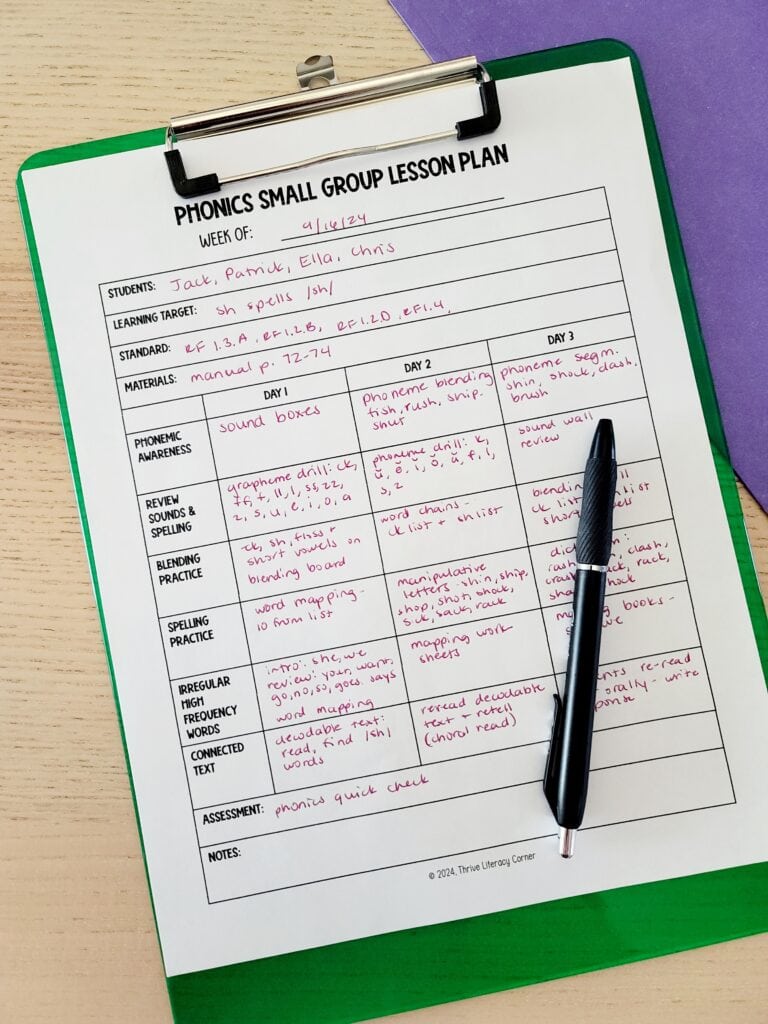 PHONICS SMALL GROUP LESSON PLAN
WEEK OF: 9/16/24
STUDENTS: Jack, Patrick, Ella, Chris
LEARNING TARGET: sh spells /sh/
STANDARD: RF 1.3.A, RF1.2.B, RF1.2.D, RF1.4,
MATERIALS: manual p. 72-74
DAY 1
DAY 2
DAY 3
PHONEMIC
AWARENESS
sound boxes
phoneme blending
fish, rush, ship,
shut
phoneme segm.
shin, shock, dash,
brush
REVIEW
SOUNDS &
SPELLING
grapheme drill: ck,
ff, f, ll, l, ss, zz,
z, s, u, e, i, o, a
phoneme drill: k,
ŭ, ĕ, ĭ, ŏ, ă, f, l,
s, z
sound wall
review
BLENDING
PRACTICE
ck, sh, flss +
short vowels on
blending board
word chains -
ck list + sh list
blending
ck list list
short
SPELLING
PRACTICE
word mapping -
10 from list
manipulative
letters: shin, ship,
shop, shot, shock,
sick, sack, rack
clash,
rack,
IRREGULAR
HIGH
FREQUENCY
WORDS
intro: she, we
review: your, want,
go, no, so, goes, says
word mapping
mapping work
sheets
books -
CONNECTED
TEXT
decodable text:
read, find /sh/
words
reread decodable
text + retell
(choral read)
re-read
orally - write
ASSESSMENT: phonics quick check
NOTES:
© 2024, Thrive Literacy Corner